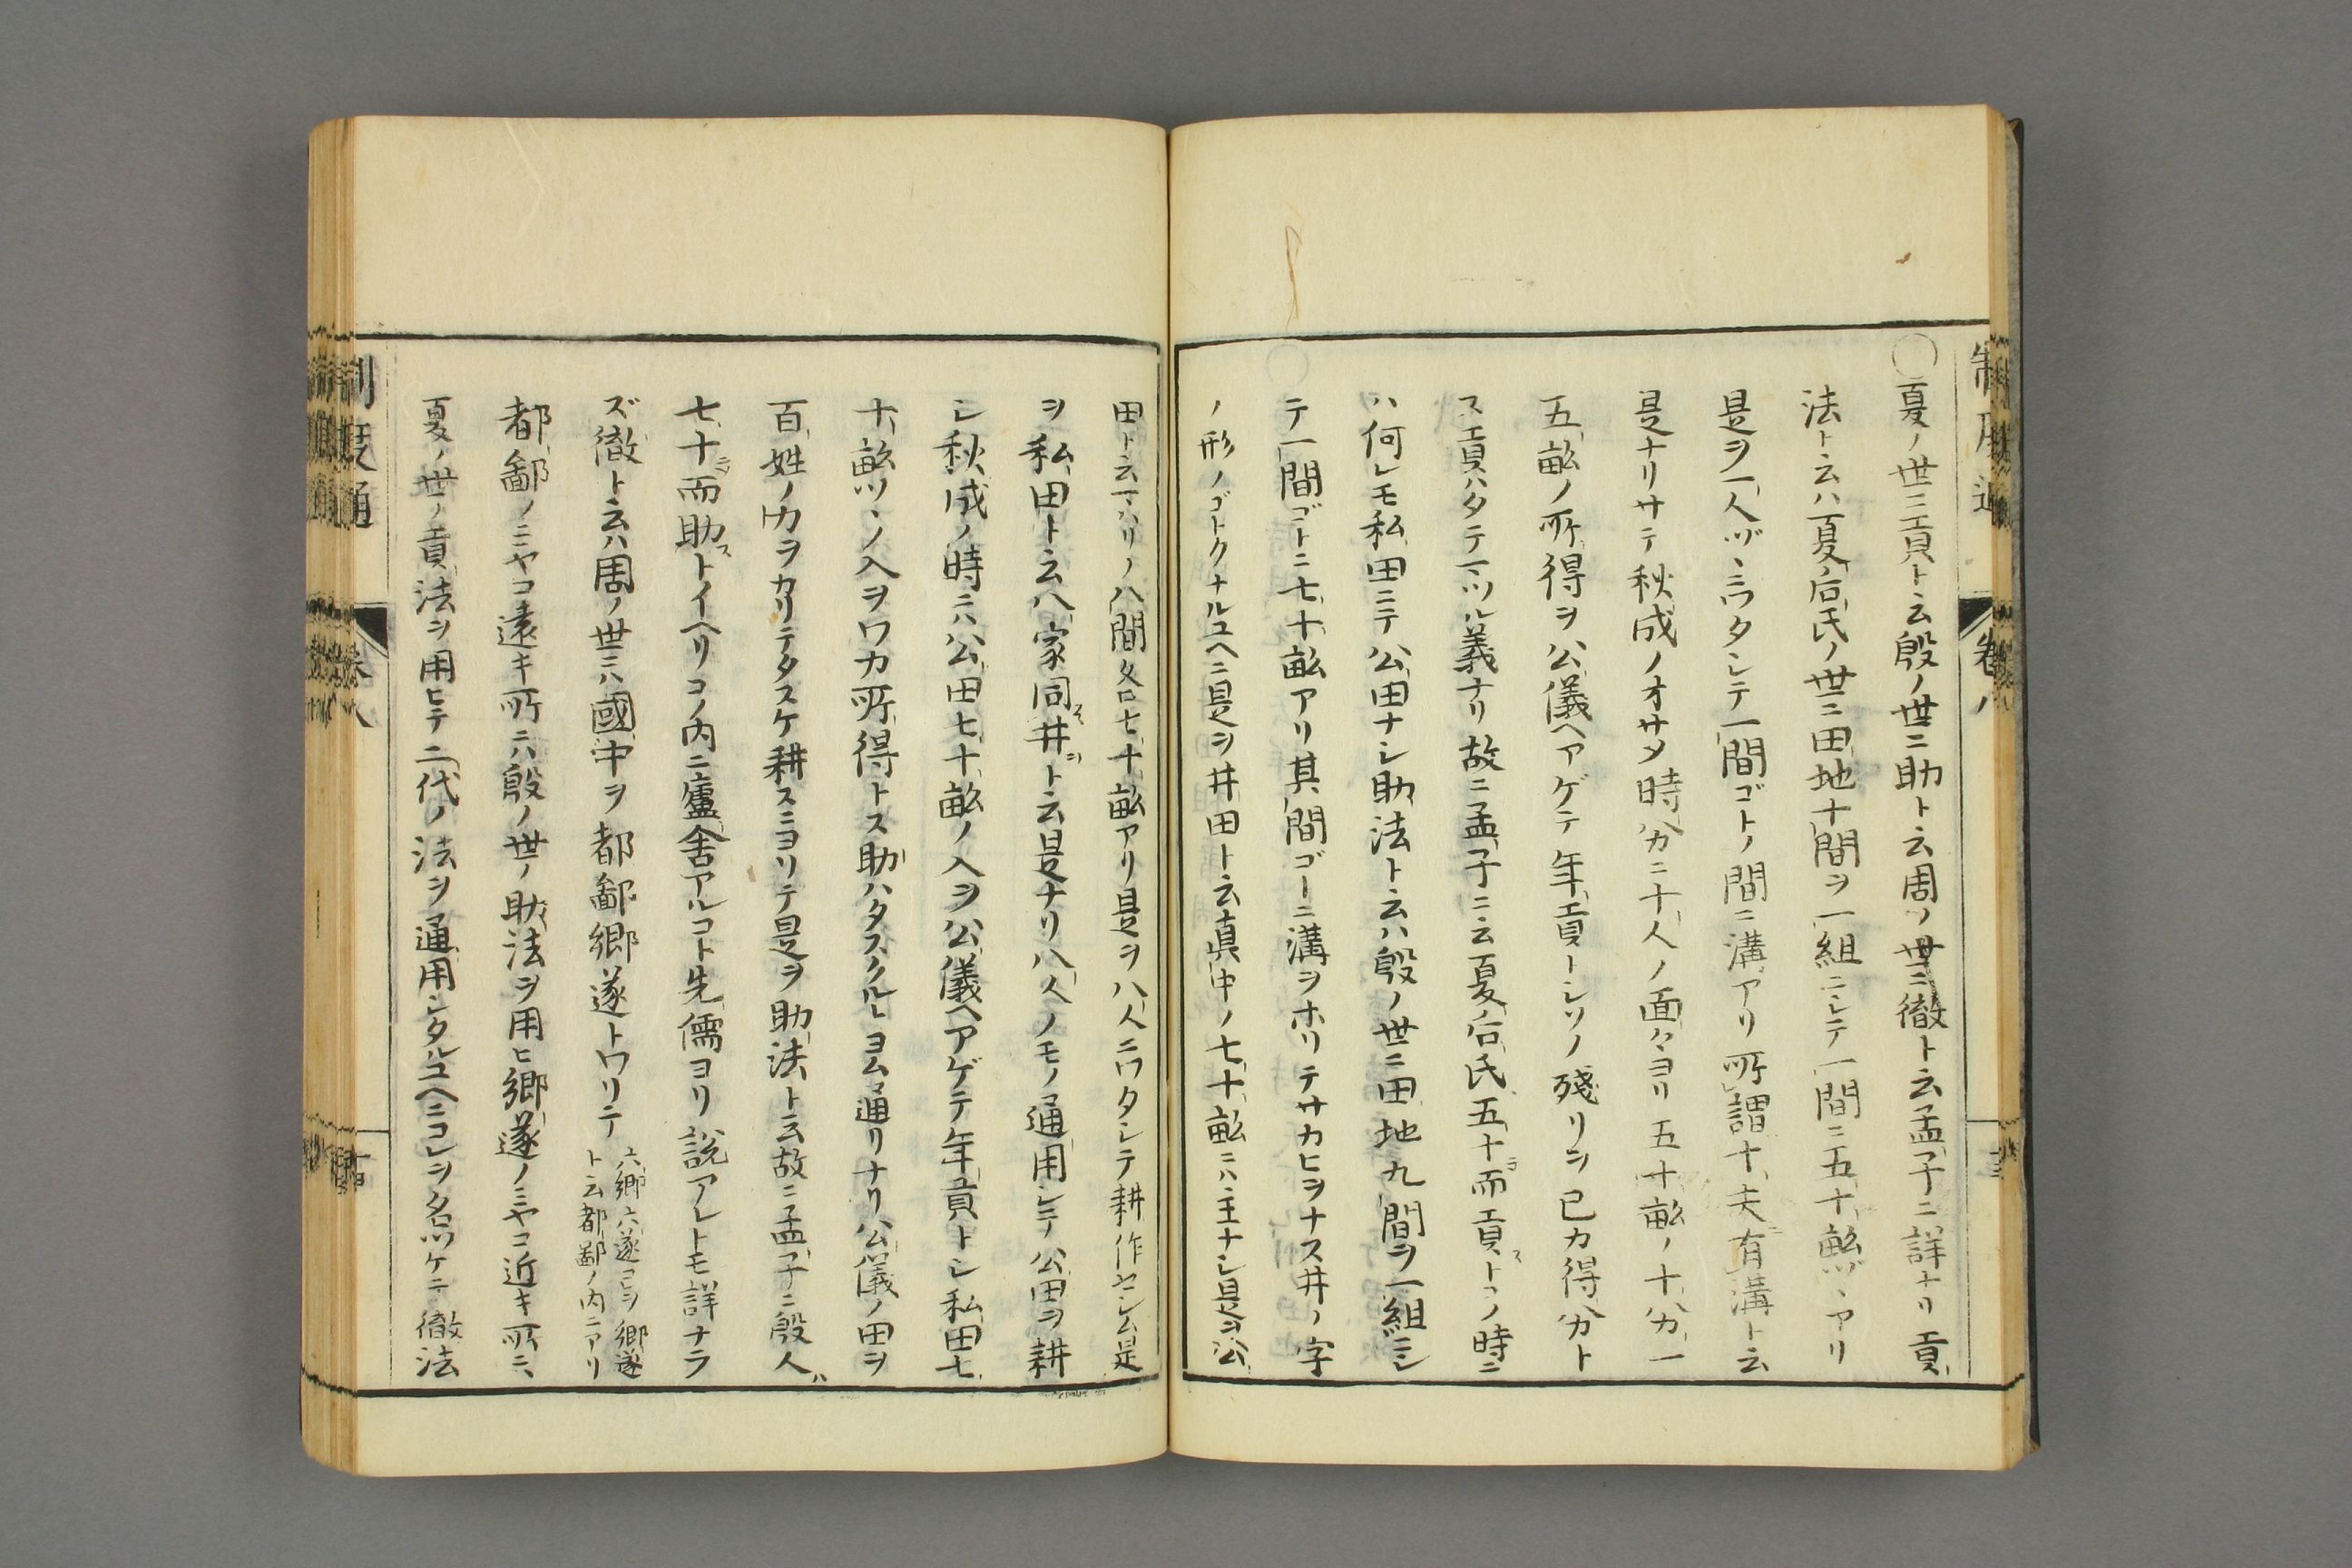 ○夏ノ世ニ貢ト云殷ノ世ニ助ト云周ノ世ニ徹ト云孟子ニ詳ナリ貢
法ト云ハ夏后氏ノ世ニ田地十間ヲ一組ニシテ一間ニ五十畝ヅヽアリ
是ヲ一人ヅヽニワタシテ一間ゴトノ間ニ溝アリ所謂十夫有溝ト云
是ナリサテ秋成ノオサメ時分ニ十人ノ面々ヨリ五十畝ノ十分一
五畝ノ所得ヲ公儀ヘアゲテ年貢トシソノ殘リヲ已カ得分ト
ス貢ハタテマツル義ナリ故ニ孟子ニ云夏后氏五十ニシテ而貢ストコノ時ニ
ハ何レモ私田ニテ公田ナシ助法ト云ハ殷ノ世ニ田地九間ヲ一組ニシ
テ一間ゴトニ七十畝アリ其間ゴトニ溝ヲホリテサカヒヲナス井ノ字
ノ形ノゴトクナルユヘニ是ヲ井田ト云真中ノ七十畝ニハ主ナシ是ヲ公
田ト云マハリノ八間各七十畝アリ是ヲ八人ニワタシテ耕作セシム是
ヲ私田ト云八家同井ト云是ナリ八人ノモノ通用シテ公田ヲ耕
シ秋成ノ時ニハ公田七十畝ノ入ヲ公儀ヘアゲテ年貢トシ私田七
十畝ツヽノ入ヲワカ所得トス助ハタスクルトヨム通リナリ公儀ノ田ヲ
百姓ノ力ヲカリテタスケ耕スニヨリテ是ヲ助法ト云故ニ孟子ニ殷人ハ
七十ニシテ而助ストイヘリコノ内ニ廬舍アルコト先儒ヨリ説アレトモ詳ナラ
ズ徹ト云ハ周ノ世ニハ國中ヲ都鄙郷遂トワリテ
六郷六遂コレヲ郷遂
ト云都鄙ノ内ニアリ
都鄙ノミヤコ遠キ所ニハ殷ノ世ノ助法ヲ用ヒ郷遂ノミヤコ近キ所ニハ
夏ノ世ノ貢法ヲ用ヒテ二代ノ法ヲ通用シタルユヘニコレヲ名ツケテ徹法
制度通
巻八